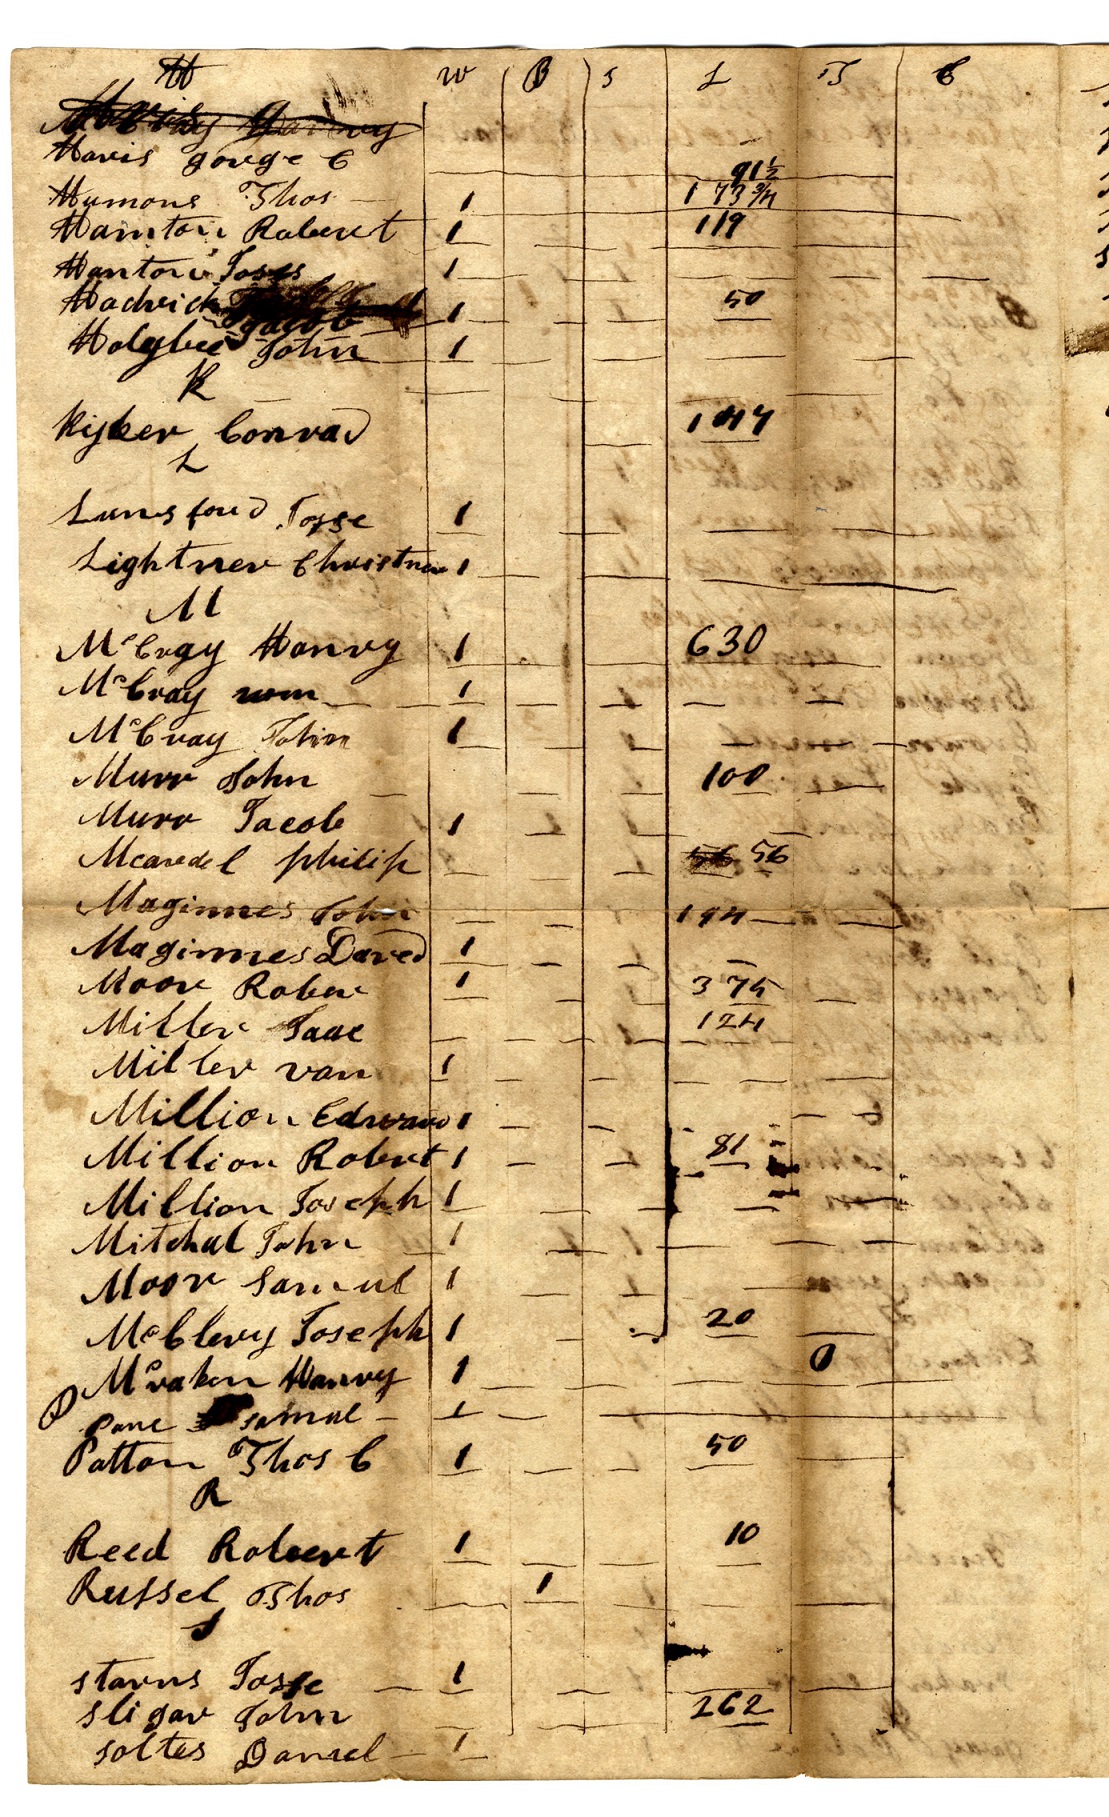 H W B S L T C
Haris gorge C 91½
Humons Thos 1 173¾
Hamton Roberet 1 119
Hanton Joses 1
Hadrick Jacob 1 50
Holybee John 1
K
Kijker Conrad 147
L
Lunsford Josse 1
Lightner Christner 1
M
McCray Hanry 1 630
McCray wm 1
McCray John 1
Murr John 100
Murr Jacob 1
Mcardel philip 56
Maginnes John 194
Maginnes David 1
Moore Rober 1 375
Miller Isaac 124
Miller van 1
Million Edward 1
Million Robert 1 81
Million Joseph 1
Mitchal John 1
Moor Samul 1
McClery Joseph 1 20
Mcraken Hanry 1
P
pane samul 1
Patton Thos C 1 50
R
Reed Robert 1 10
Russel Thos 1
S
starns Josse 1
sligar John 262
soltes Danael 1